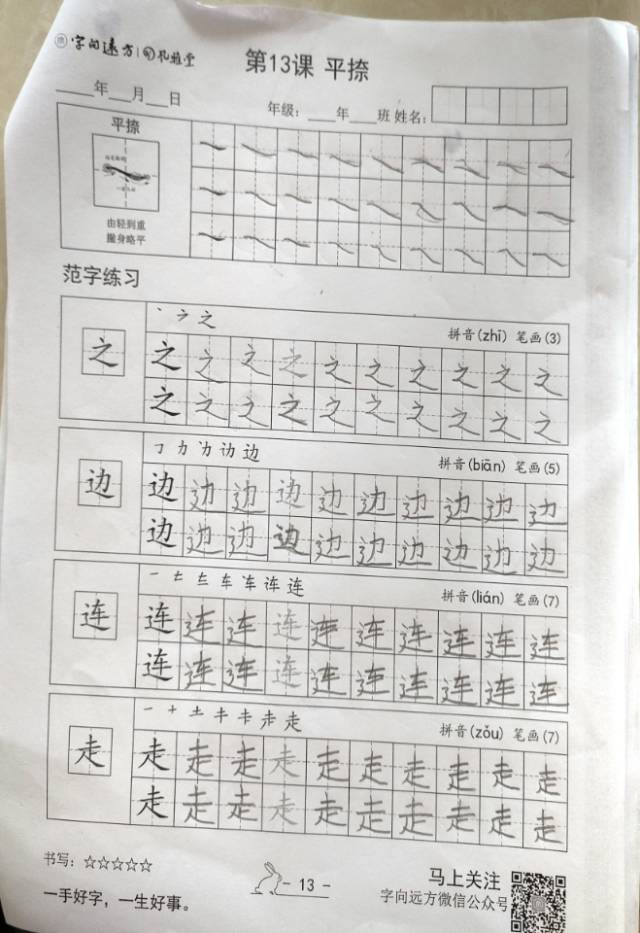 字向远方 孔雅堂
第13课 平捺
___年___月___日
年级：___年___班 姓名：
平捺
由轻到重
握身略平
范字练习
丶 ㇇ 之
拼音(zhī) 笔画(3)
之 之 之 之 之 之 之 之 之 之 之
之 之 之 之 之 之 之 之 之 之
拼音(biān) 笔画(5)
边 边 边 边 边 边 边 边 边 边 边
边 边 边 边 边 边 边 边 边 边
拼音(lián) 笔画(7)
连 连 连 连 连 连 连 连 连 连 连
连 连 连 连 连 连 连 连 连 连
拼音(zǒu) 笔画(7)
走 走 走 走 走 走 走 走 走 走 走
走 走 走 走 走 走 走 走 走 走
书写：☆☆☆☆☆
一手好字，一生好事。
- 13 -
马上关注
字向远方微信公众号